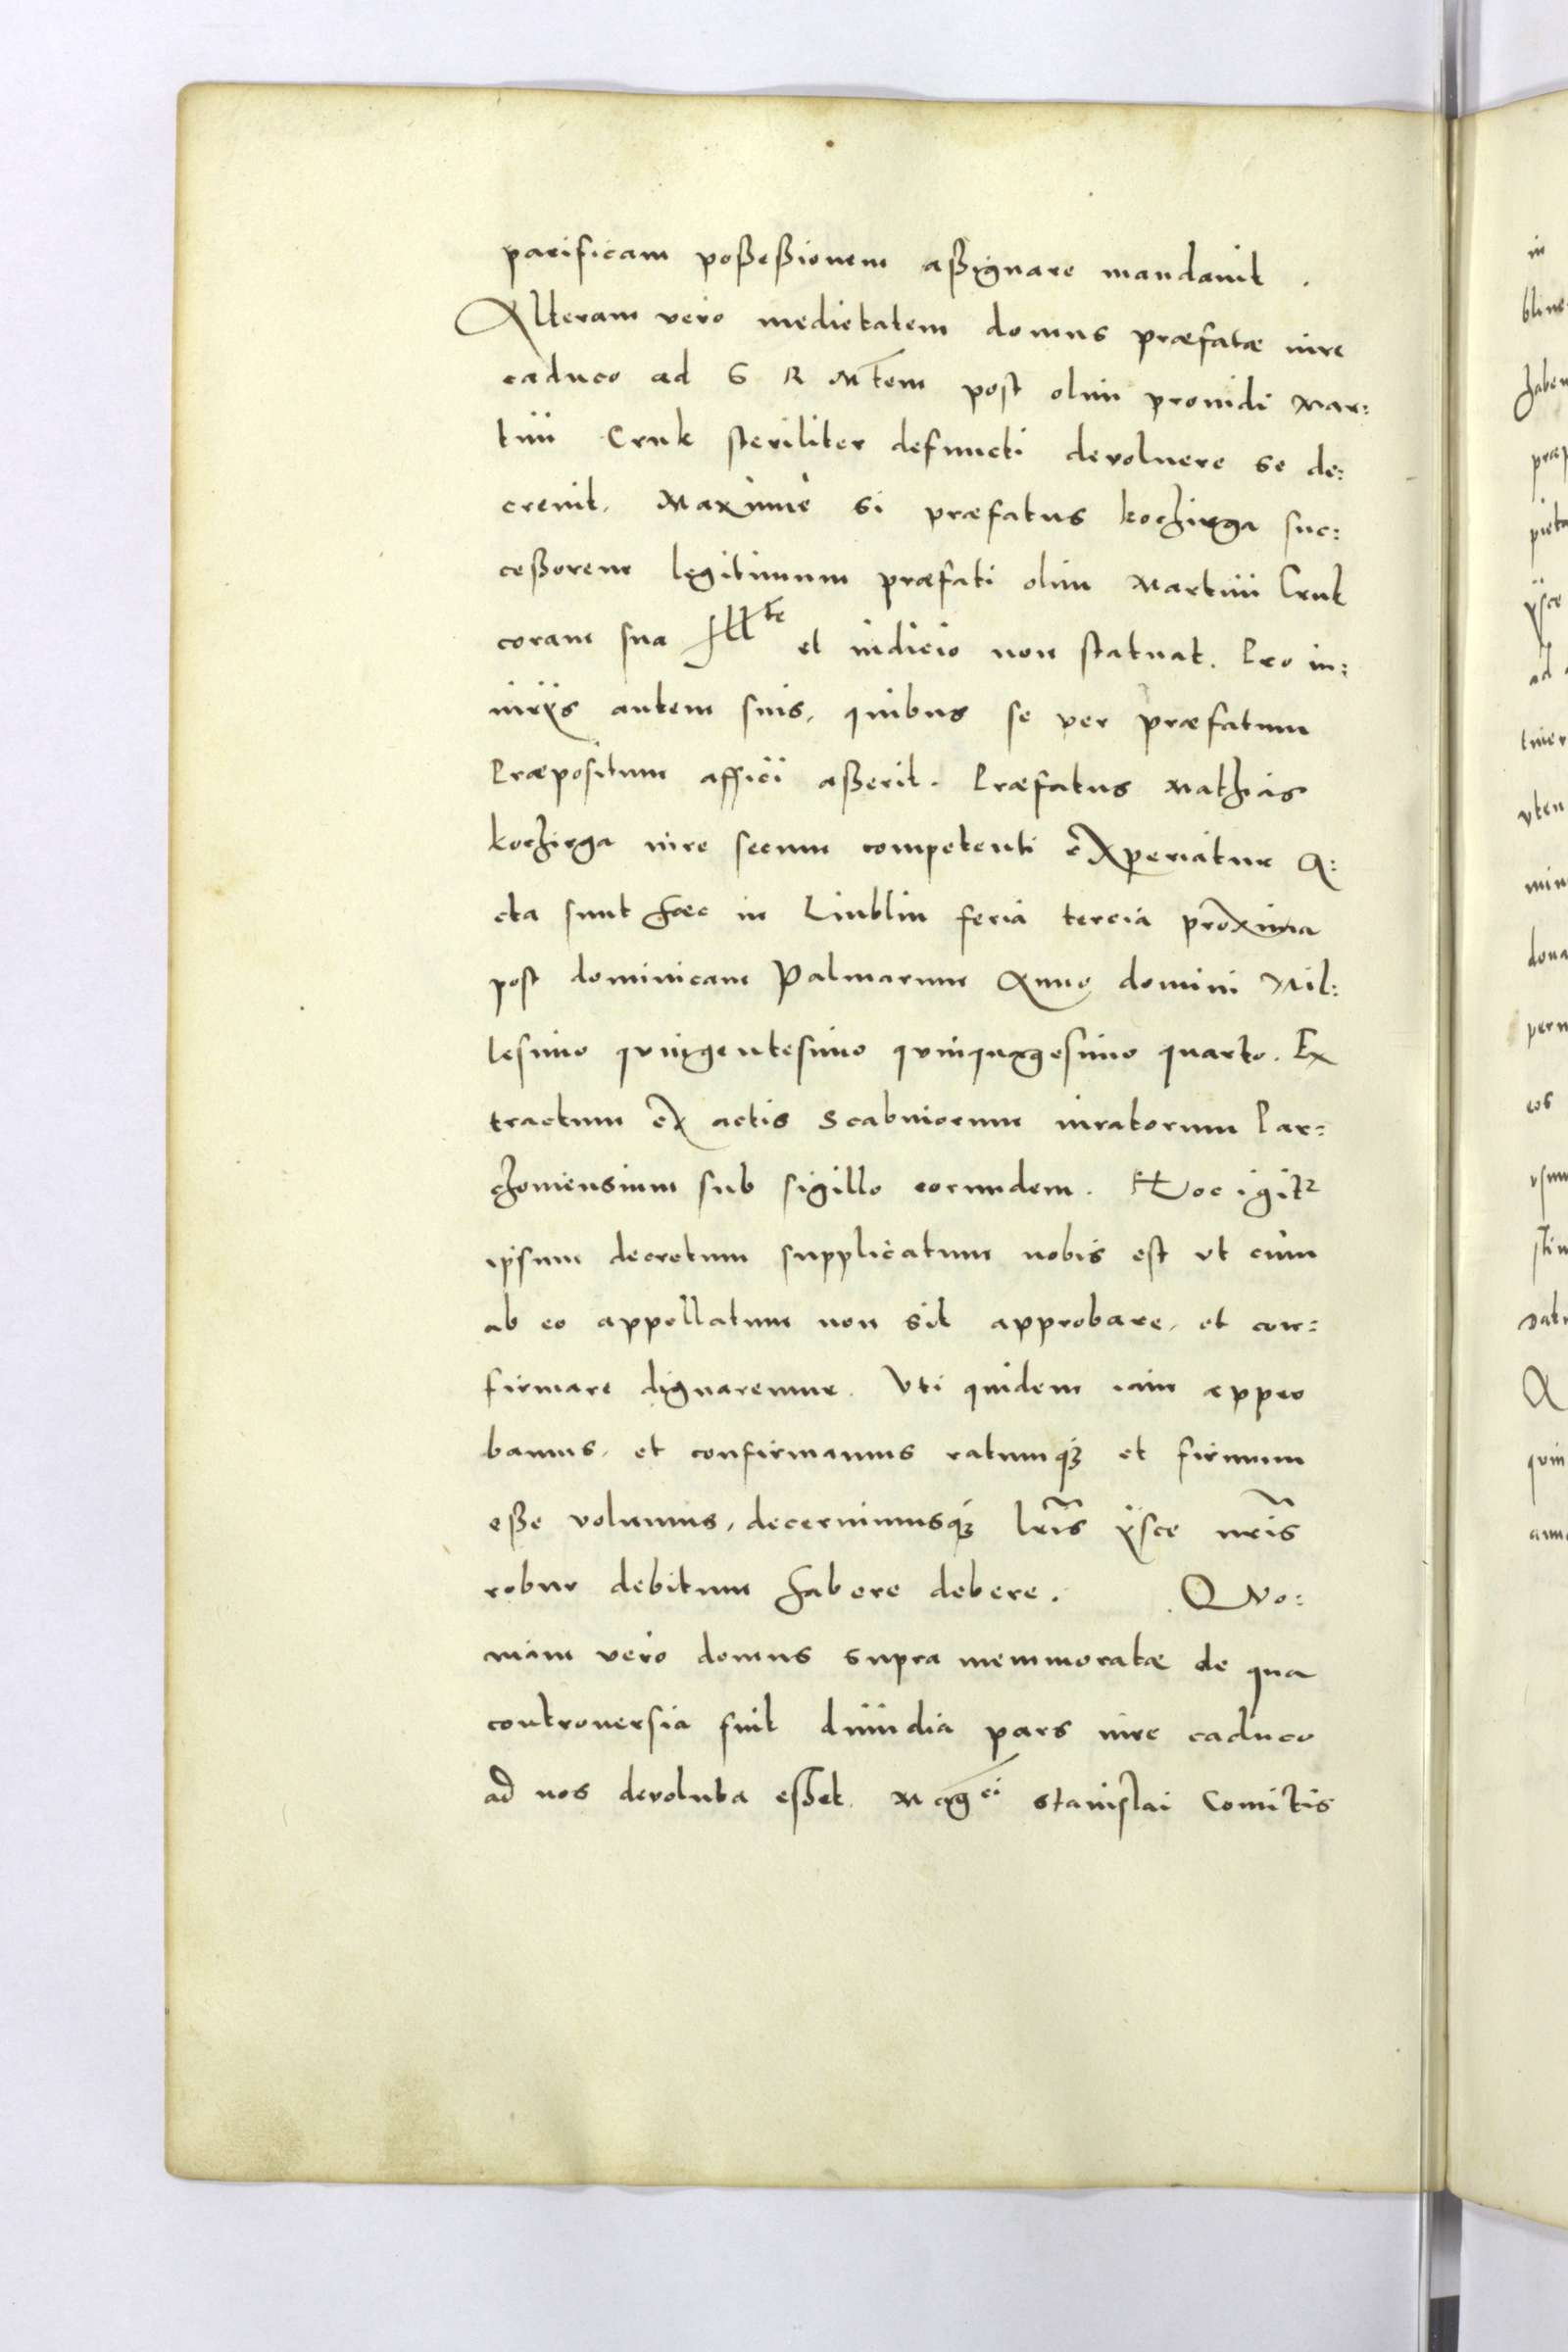 pacificam poßeßionem aßignare mandauit .
Alteram vero medietatem domus præfatæ iure
caduco ad S R Mtem post olim prouidi Mar:
tini Cruk steriliter defuncti deuoluere se de:
creuit. Maxime si præfatus kochirga suc:
ceßorem legitimum præfati olim Martini Cruk
coram sua Illte et iudicio non statuat. Pro in:
iurÿs autem suis, quibus se per præfatum
Præpositum affici aßerit. Præfatus Mathias
kochirga iure secum competenti experiatur A:
cta sunt hæc in Liublin feria tercia proxima
post dominicam Palmarum Anno domini Mil:
lesimo quingentesimo quinquagesimo quarto. Ex
tractum ex actis Scabinorum iuratorum Par:
chouiensium sub sigillo eorundem. Hoc igitr
ipsum decretum supplicatum nobis est vt cum
ab eo appellatum non sit approbare, et con:
firmare dignaremur. Vti quidem iam appro
bamus, et confirmamus ratumqȝ et firmum
eße volumus, decernimusqȝ lris ÿsce nris
robur debitum habere debere. QVo:
niam vero domus supra memmoratæ de qua
controuersia fuit dimidia pars iure caduco
ad nos deuoluta eßet. Magci Stanislai Comitis